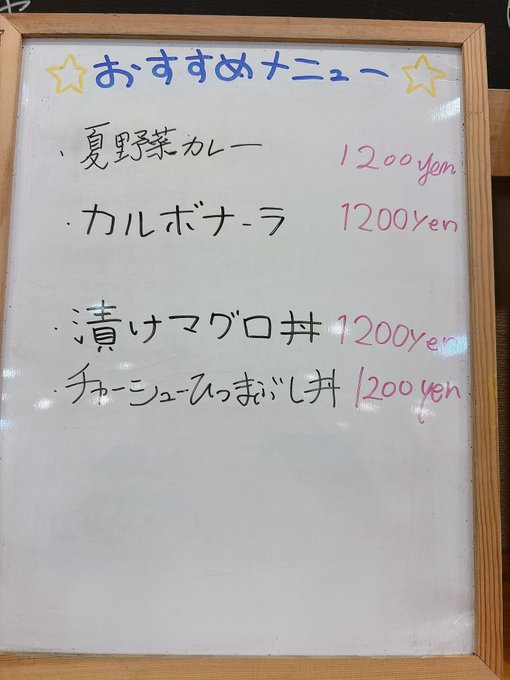 ☆おすすめメニュー☆
・夏野菜カレー 1200yen
・カルボナーラ 1200yen
・漬けマグロ丼 1200yen
・チャーシューひつまぶし丼 1200yen